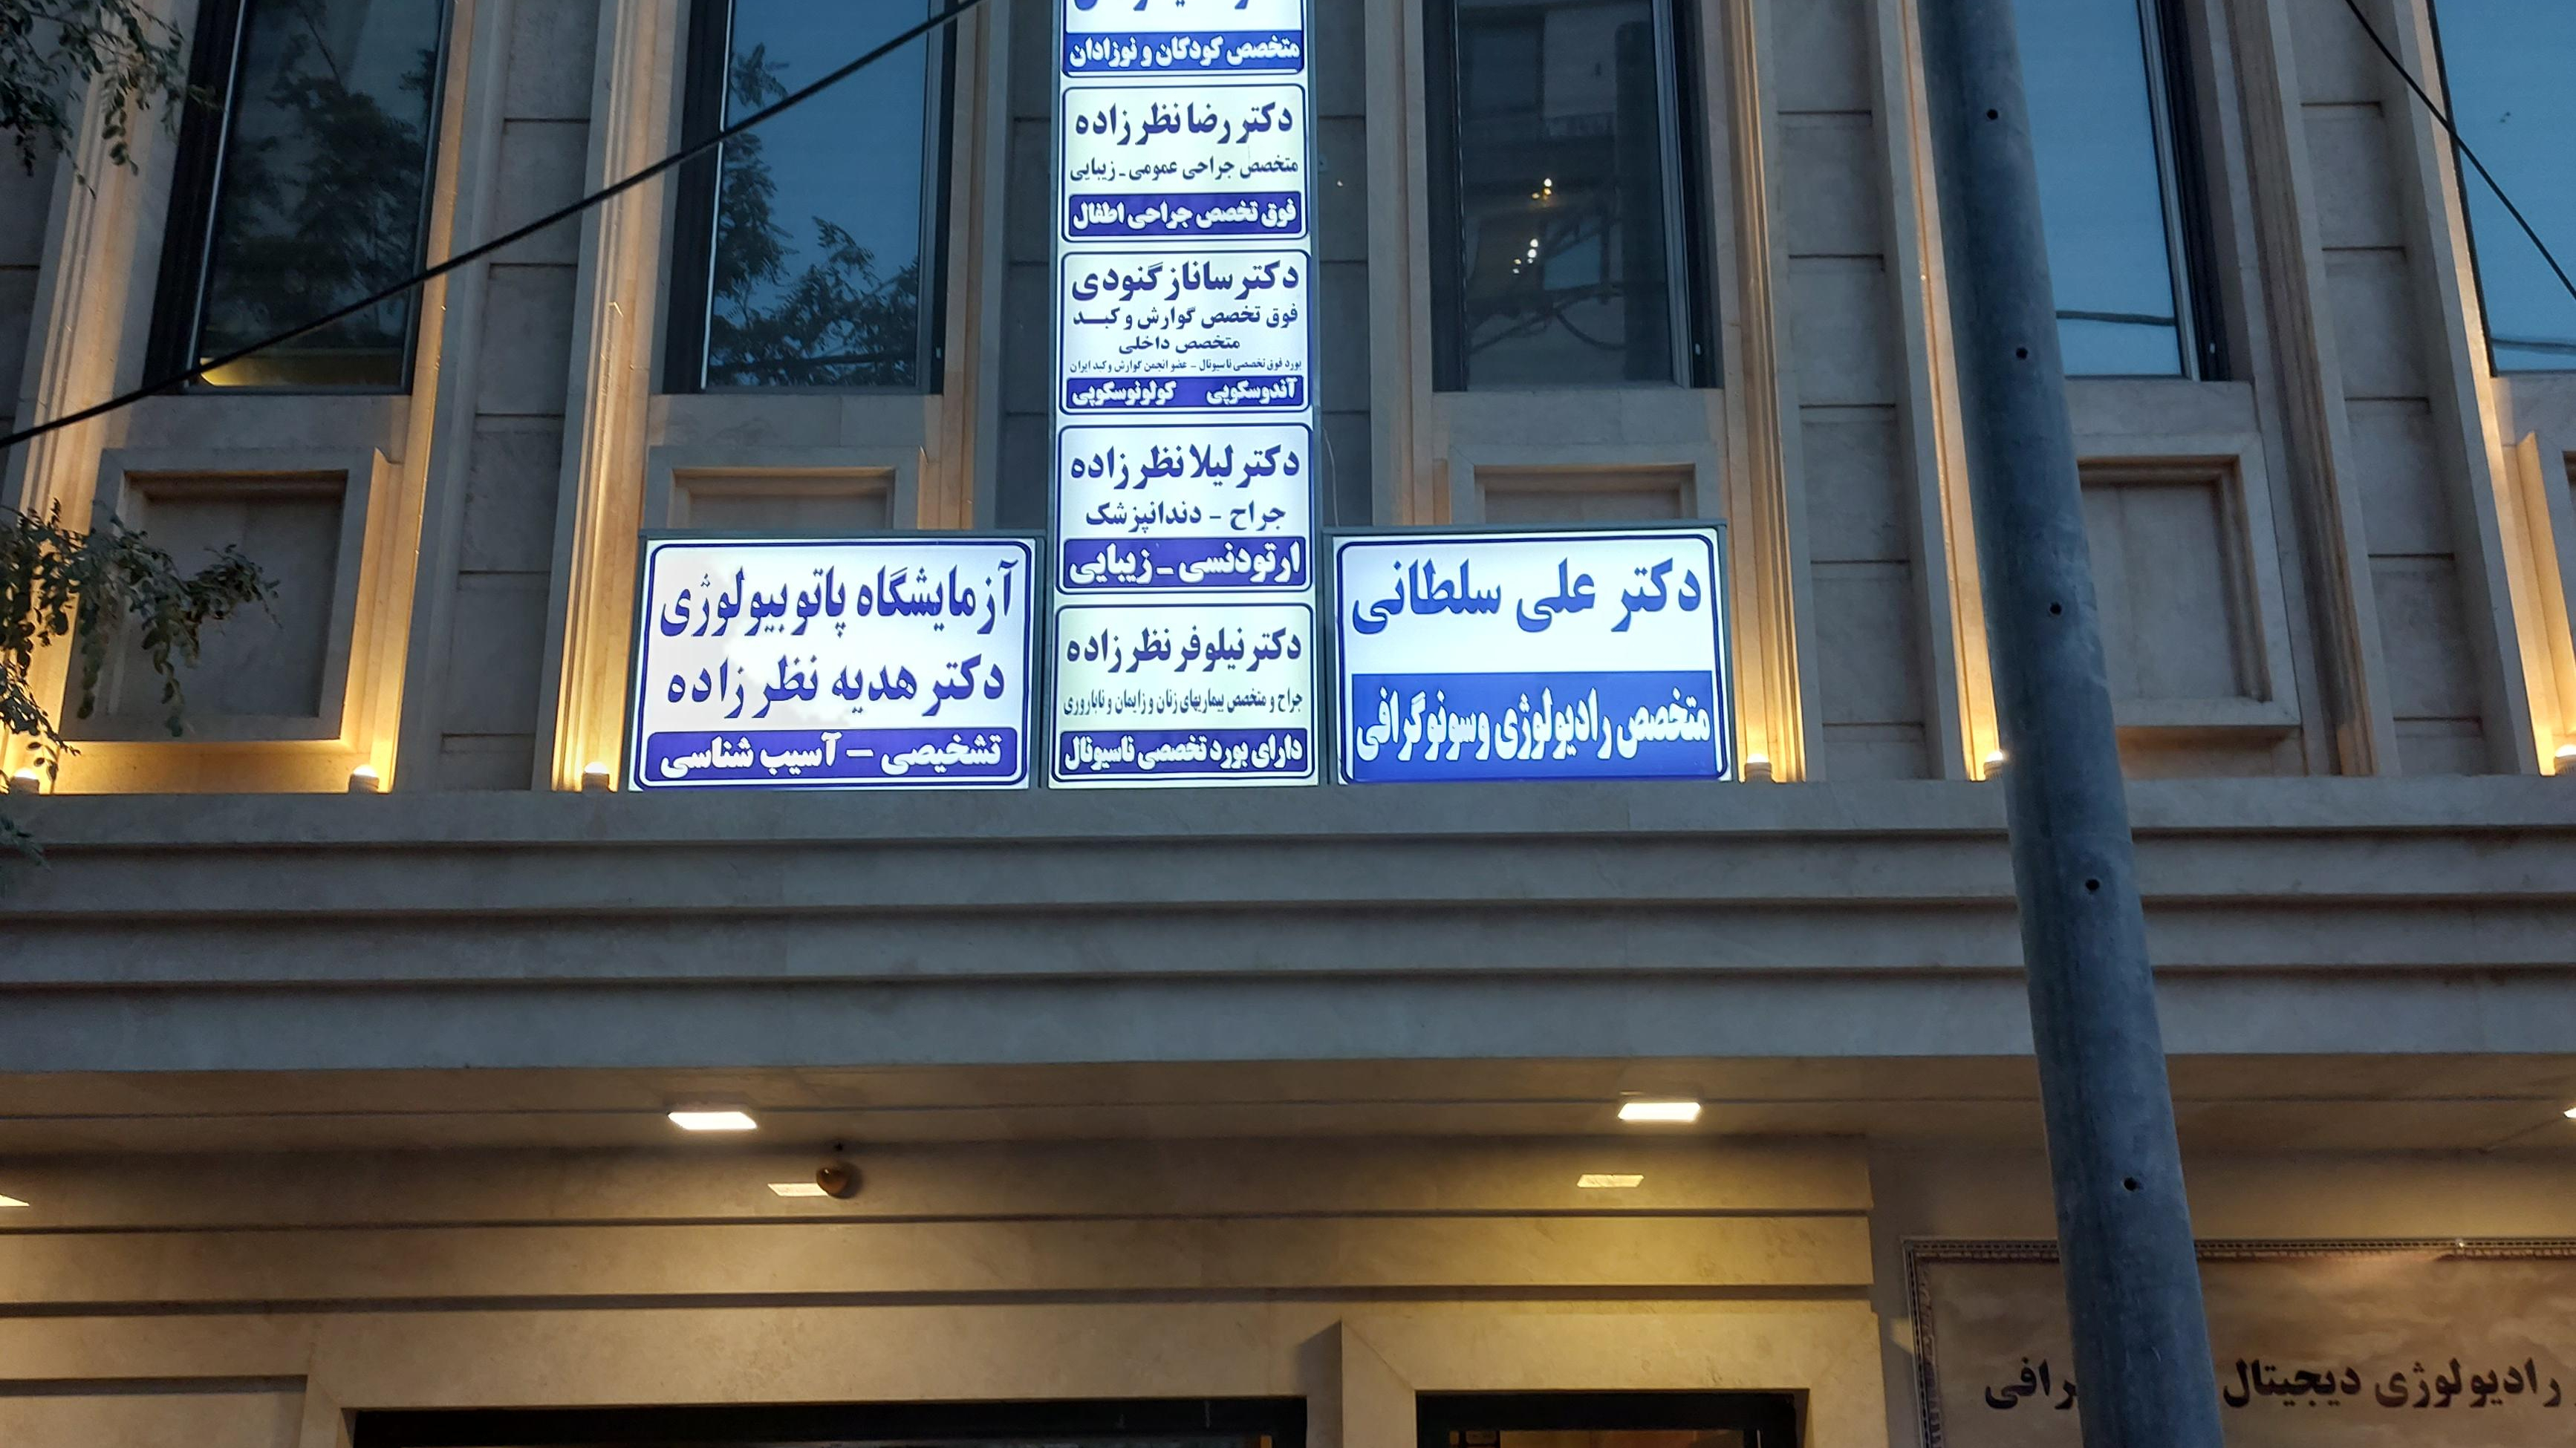 متخصص کودکان و نوزادان
دکتر رضا نظرزاده
متخصص جراحی عمومی - زیبایی
فوق تخصص جراحی اطفال
دکتر ساناز گنودی
فوق تخصص گوارش و کبد
متخصص داخلی
بورد فوق تخصصی ناسیونال - عضو انجمن گوارش و کبد ایران
آندوسکوپی کولونوسکوپی
دکتر لیلا نظرزاده
جراح - دندانپزشک
ارتودنسی - زیبایی
دکتر نیلوفر نظرزاده
جراح و متخصص بیماریهای زنان و زایمان و ناباروری
دارای بورد تخصصی ناسیونال
دکتر علی سلطانی
متخصص رادیولوژی و سونوگرافی
آزمایشگاه پاتوبیولوژی
دکتر هدیه نظرزاده
تشخیصی - آسیب شناسی
رادیولوژی دیجیتال